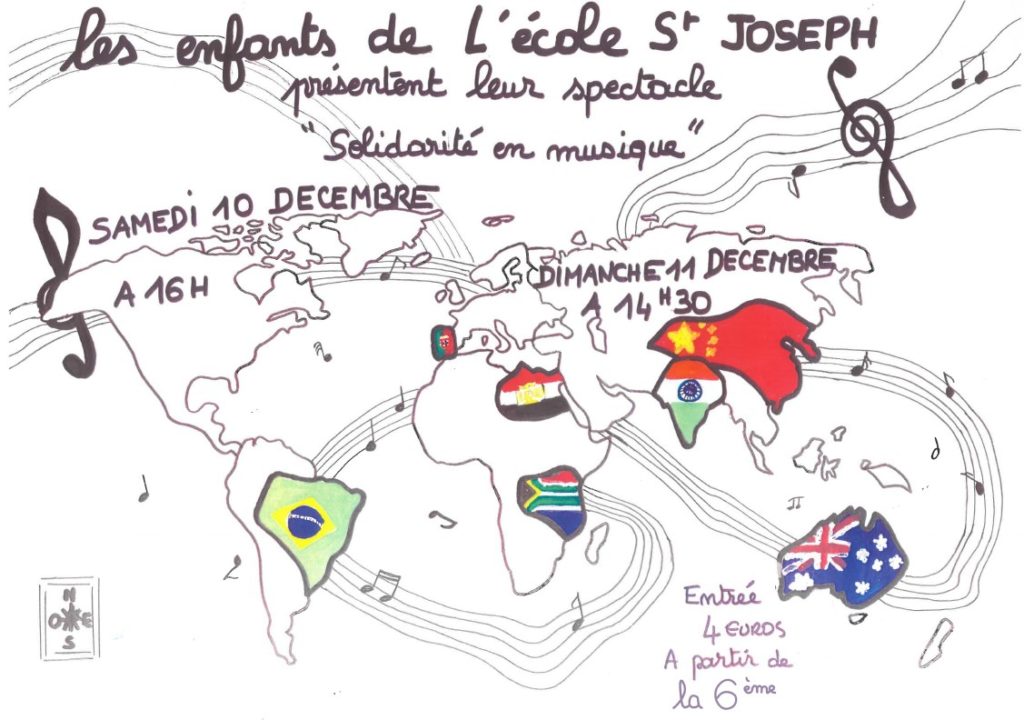 les enfants de L'école Sᵗ JOSEPH
présentent leur spectacle
"Solidarité en musique"
SAMEDI 10 DECEMBRE
A 16H
DIMANCHE 11 DECEMBRE
A 14ᴴ30
Entrée
4 EUROS
A partir de
la 6ᵉᵐᵉ
N
O E
S